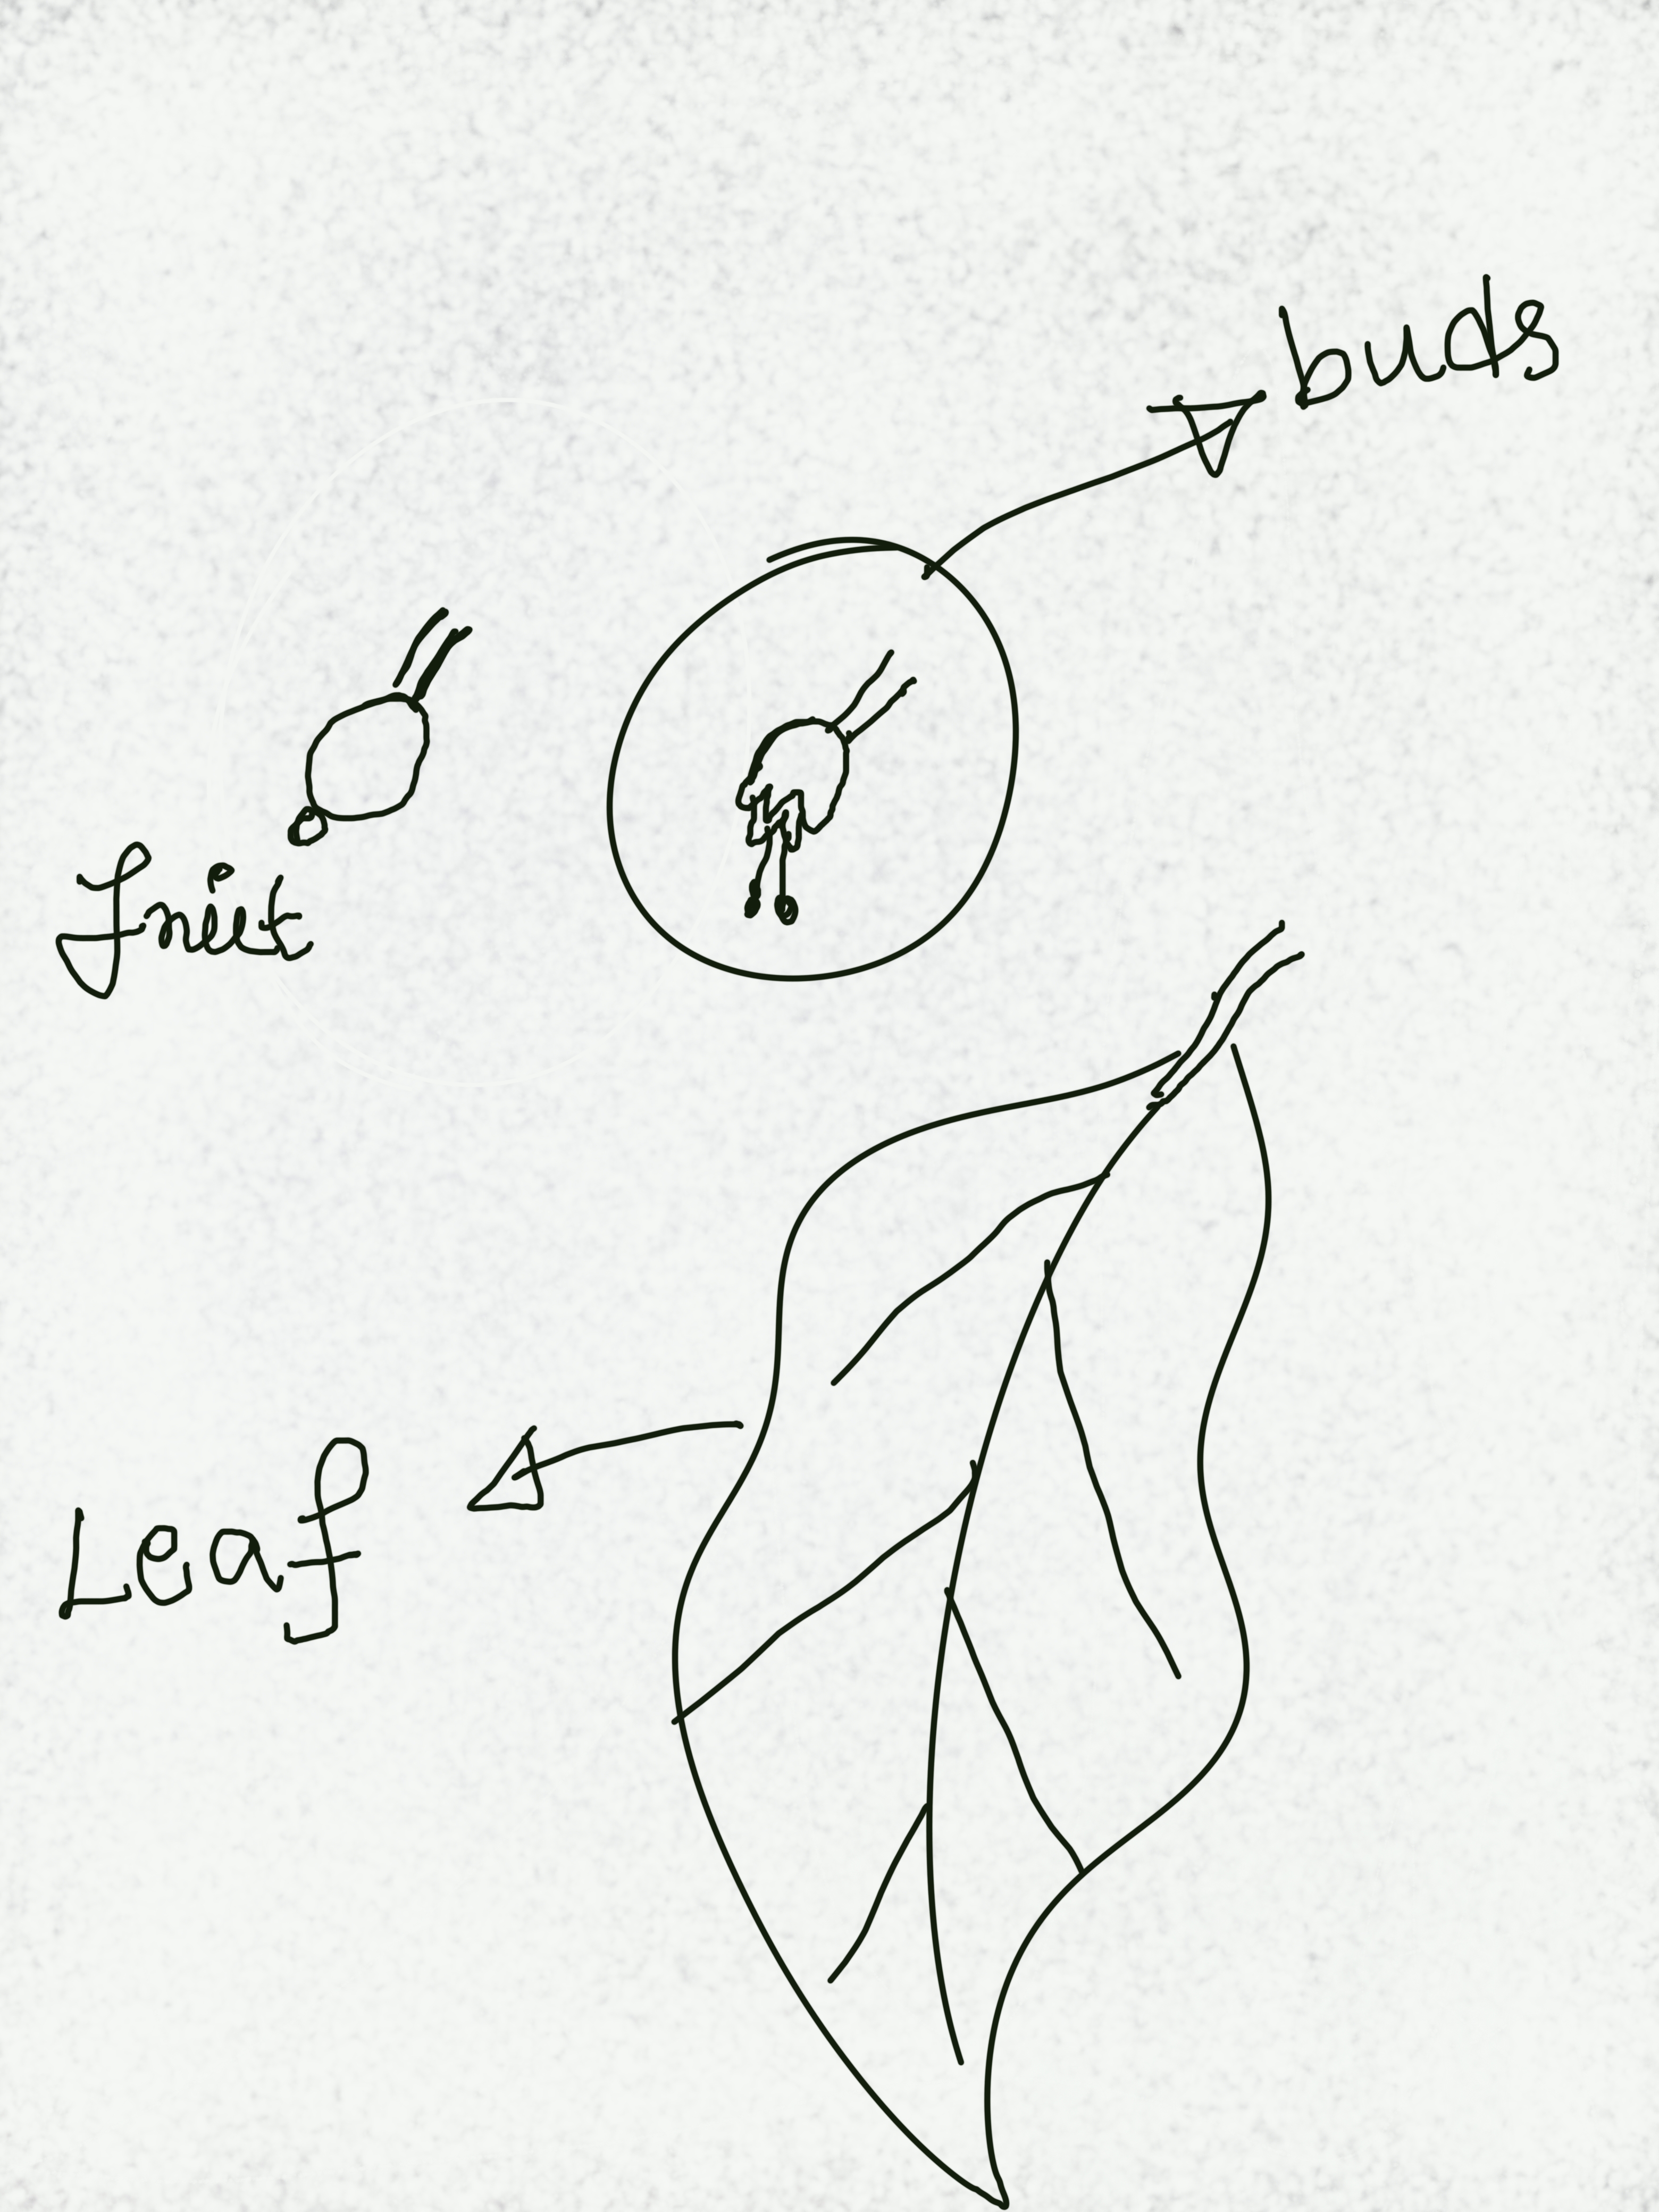 buds
fruit
Leaf